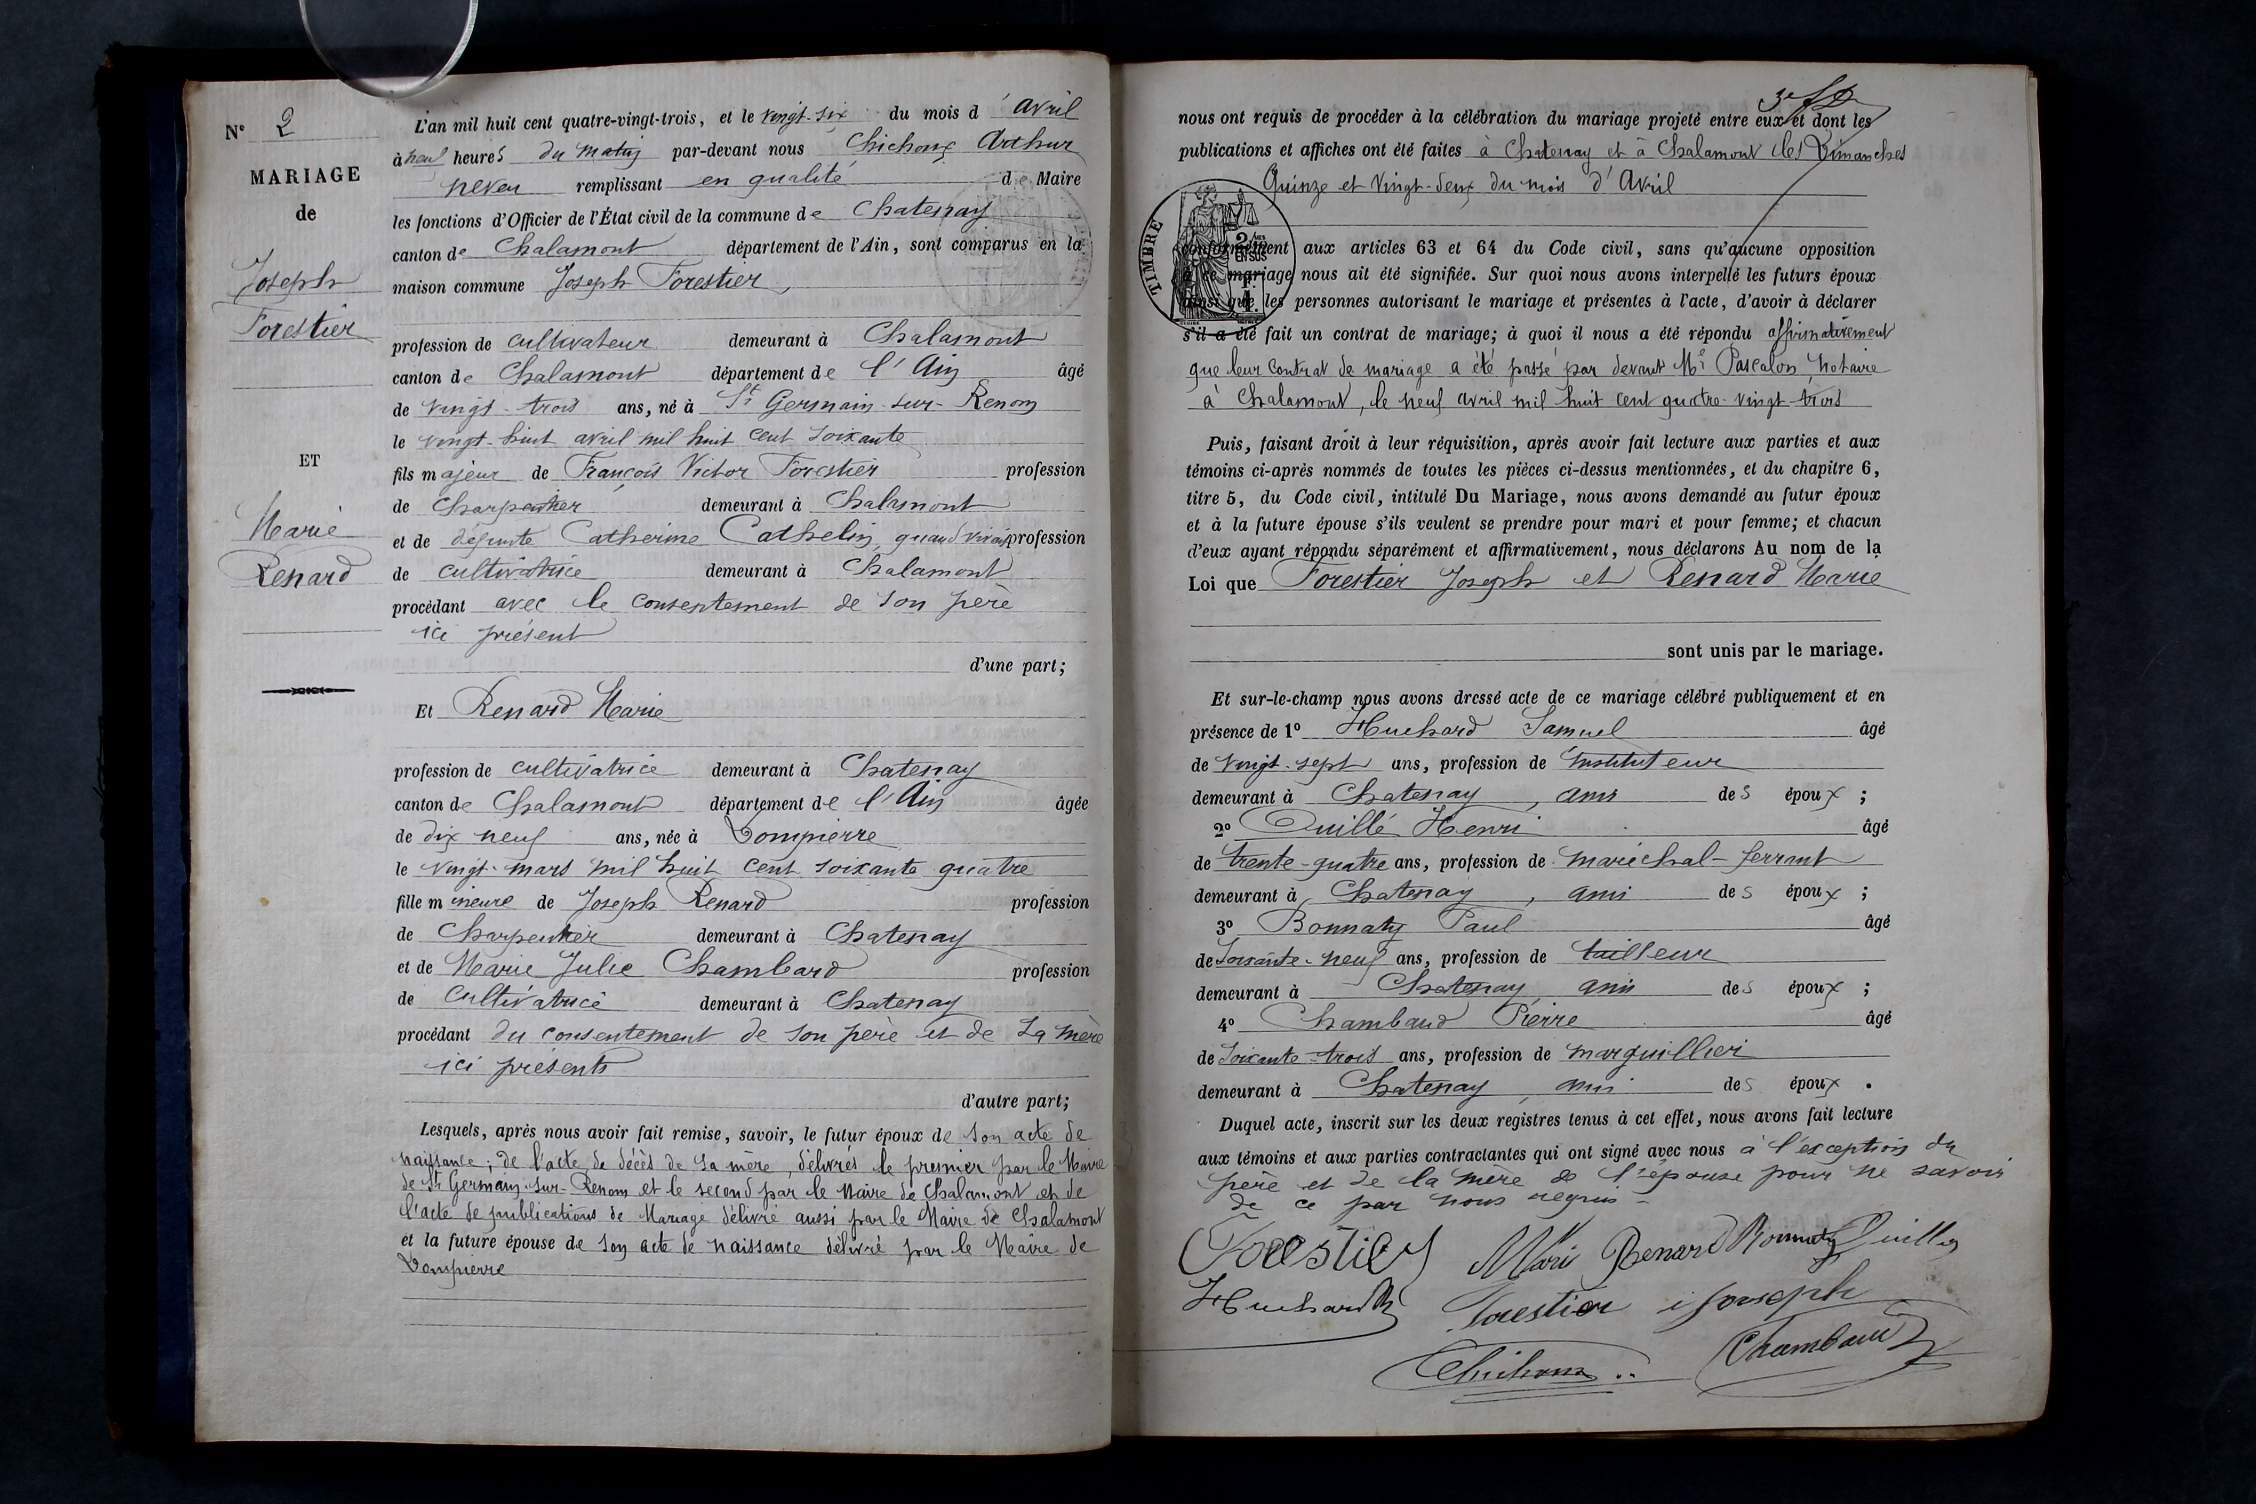 N° 2
MARIAGE
de
Joseph
Forestier
ET
Marie
Renard
L'an mil huit cent quatre-vingt-trois, et le vingt-six du mois d'avril
à neuf heures du matin par-devant nous Chichoux Arthur
neveu remplissant en qualité de Maire
les fonctions d'Officier de l'État civil de la commune de Chatenay
canton de Chalamont département de l'Ain, sont comparus en la
maison commune Joseph Forestier,
profession de cultivateur demeurant à Chalamont
canton de Chalamont département de l'Ain âgé
de vingt-trois ans, né à St Germain-sur-Renom
le vingt-huit avril mil huit cent soixante
fils majeur de François Victor Forestier profession
de Charpentier demeurant à Chalamont
et de défunte Catherine Cathelin, quand vivait profession
de cultivatrice demeurant à Chalamont
procédant avec le consentement de son père
ici présent
d'une part;
Et Renard Marie
profession de cultivatrice demeurant à Chatenay
canton de Chalamont département de l'Ain âgée
de dix neuf ans, née à Dompierre
le vingt-mars mil huit cent soixante quatre
fille mineure de Joseph Renard profession
de Charpentier demeurant à Chatenay
et de Marie Julie Chambard profession
de Cultivatrice demeurant à Chatenay
procédant du consentement de son père et de sa mère
ici présents
d'autre part;
Lesquels, après nous avoir fait remise, savoir, le futur époux de son acte de
naissance; de l'acte de décès de sa mère, délivrés le premier par le Maire
de St Germain-sur-Renom et le second par le Maire de Chalamont et de
l'acte de publications de Mariage délivré aussi par le Maire de Chalamont
et la future épouse de son acte de naissance délivré par le Maire de
Dompierre
nous ont requis de procéder à la célébration du mariage projeté entre eux et dont les
publications et affiches ont été faites à Chatenay et à Chalamont les Dimanches
Quinze et Vingt-deux du mois d'Avril
TIMBRE
conformément aux articles 63 et 64 du Code civil, sans qu'aucune opposition
à ce mariage nous ait été signifiée. Sur quoi nous avons interpellé les futurs époux
ainsi que les personnes autorisant le mariage et présentes à l'acte, d'avoir à déclarer
s'il a été fait un contrat de mariage; à quoi il nous a été répondu affirmativement
que leur contrat de mariage a été passé par devant Me Pascalon, notaire
à Chalamont, le neuf avril mil huit cent quatre-vingt-trois
Puis, faisant droit à leur réquisition, après avoir fait lecture aux parties et aux
témoins ci-après nommés de toutes les pièces ci-dessus mentionnées, et du chapitre 6,
titre 5, du Code civil, intitulé Du Mariage, nous avons demandé au futur époux
et à la future épouse s'ils veulent se prendre pour mari et pour femme; et chacun
d'eux ayant répondu séparément et affirmativement, nous déclarons Au nom de la
Loi que Forestier Joseph et Renard Marie
sont unis par le mariage.
Et sur-le-champ nous avons dressé acte de ce mariage célébré publiquement et en
présence de 1° Huchard Samuel âgé
de vingt-sept ans, profession de Instituteur
demeurant à Chatenay, ami des époux;
2° Quillé Henri âgé
de trente-quatre ans, profession de maréchal-ferrant
demeurant à Chatenay, ami des époux;
3° Bonnaty Paul âgé
de Soixante-neuf ans, profession de tailleur
demeurant à Chatenay ami des époux;
4° Chambaud Pierre âgé
de Soixante-trois ans, profession de marguillier
demeurant à Chatenay, ami des époux.
Duquel acte, inscrit sur les deux registres tenus à cet effet, nous avons fait lecture
aux témoins et aux parties contractantes qui ont signé avec nous à l'exception du
père et de la mère de l'épouse pour ne savoir
de ce par nous requis
Forestier Marie Renard Bonnaty Quillé
Huchard Forestier joseph
Chichoux Chambaud